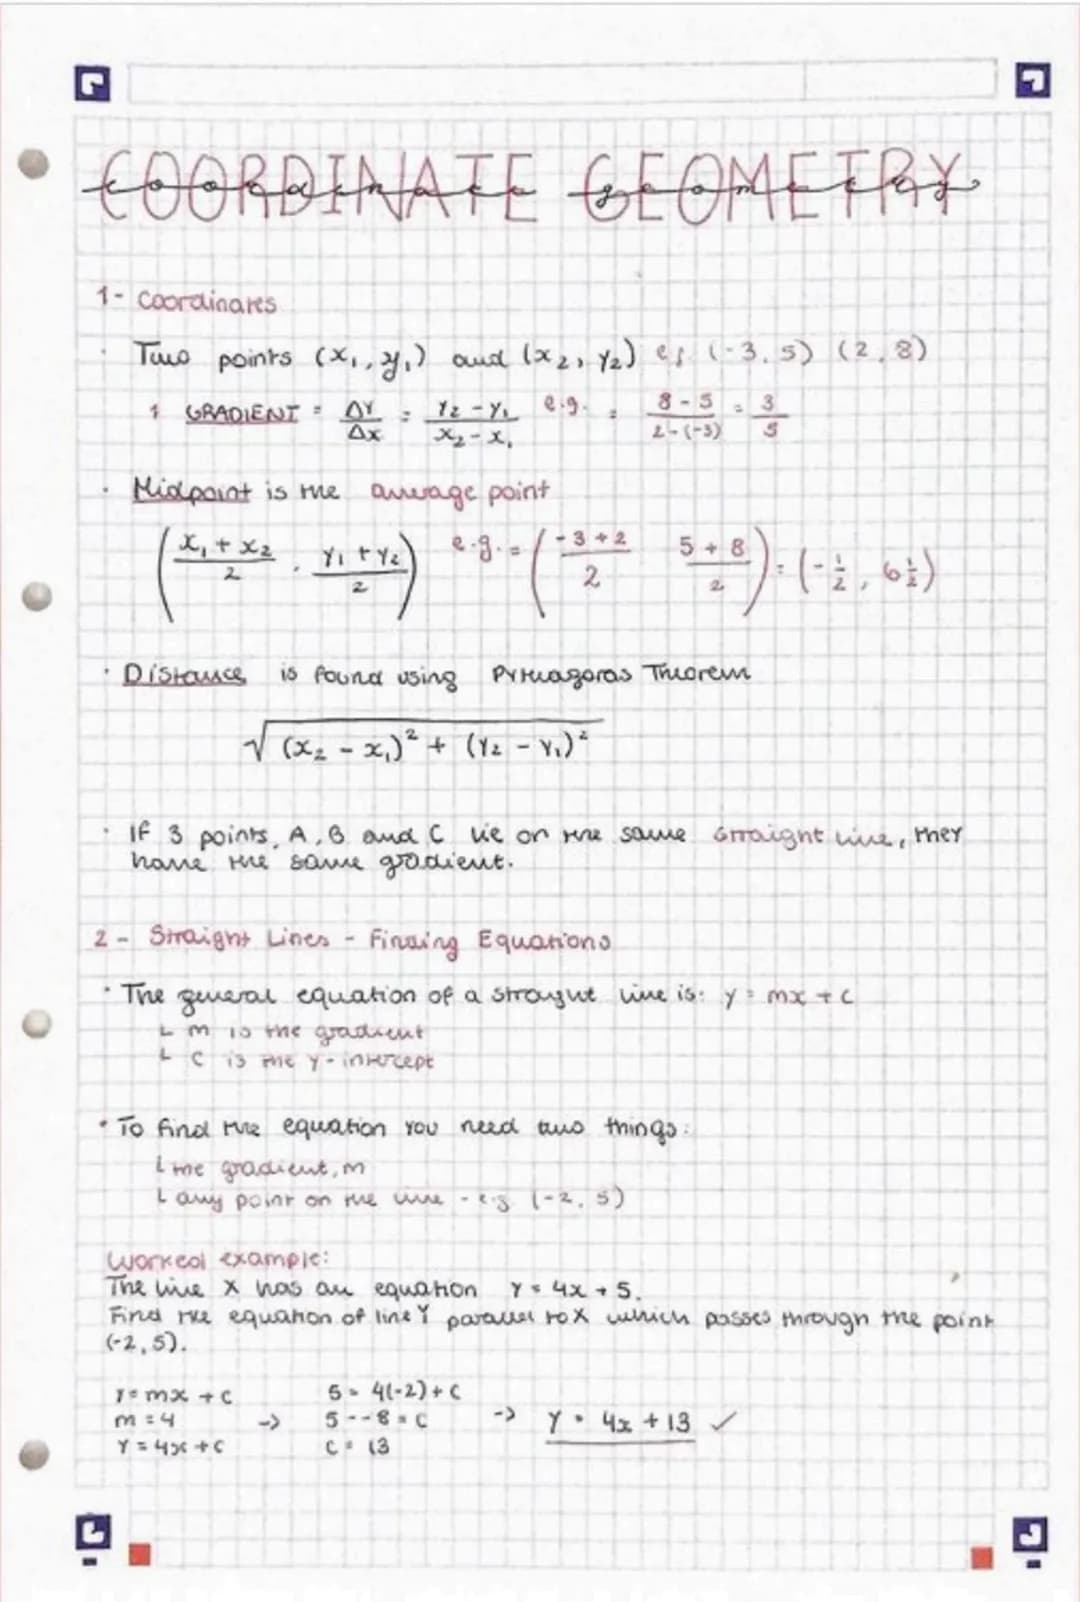 COORDINATE GEOMETRY
coordinate geometry
1- Coordinates
· Two points (x₁, y₁) and (x₂, y₂) eg. (-3, 5) (2, 8)
1 GRADIENT = ΔY/Δx = (Y₂ - Y₁)/(x₂ - x₁) e.g. = (8 - 5)/(2 - (-3)) = 3/5
· Midpoint is the average point
((x₁ + x₂)/2, (Y₁ + Y₂)/2) e.g. = ((-3 + 2)/2 (5 + 8)/2) = (-½, 6½)
· Distance is found using Pythagoras Theorem
√((x₂ - x₁)² + (Y₂ - Y₁)²)
· IF 3 points, A, B and C lie on the same straight line, they
have the same gradient.
2 - Straight Lines - Finding Equations
· The general equation of a straight line is: y = mx + c
└ m is the gradient
└ c is the y-intercept
· To find the equation you need two things:
└ the gradient, m
└ any point on the line - e.g. (-2, 5)
Worked example:
The line X has an equation Y = 4x + 5.
Find the equation of line Y parallel to X which passes through the point
(-2, 5).
Y = mx + c 5 = 4(-2) + c
m = 4 -> 5 - -8 = c -> Y = 4x + 13 ✓
Y = 4x + c c = 13